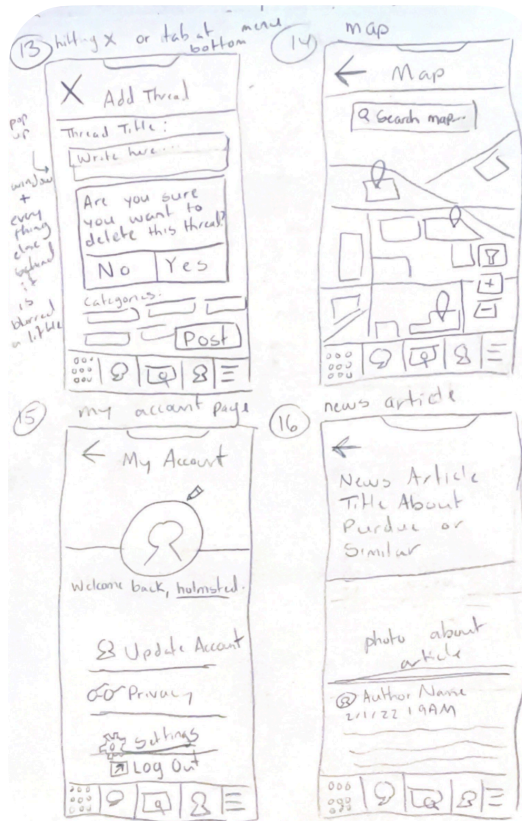 13 hitting X or tab at menu
bottom
X Add Thread
pop
up
window
+
every
thing
else
behind
it
is
blurred
a little
Thread Title:
Write here...
Are you sure
you want to
delete this thread?
No Yes
Categories:
Post
14 map
← Map
Search map...
+
-
15 my account page
← My Account
Welcome back, holmsted.
Update Account
Privacy
Settings
Log Out
16 news article
←
News Article
Title About
Purdue or
Similar
photo about
article
Author Name
2/1/22 19AM